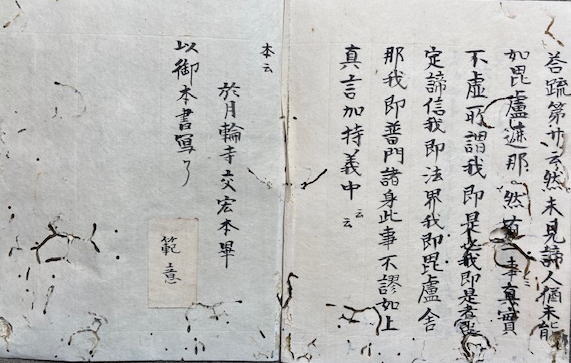 荅疏第廿云然未見諦人猶未能
如毘盧遮那然 事真實
不虚所謂我即是 我即是
定諦信我即法界我即毘盧舎
那我即普門諸身此事不謬如上
真言加持義中云云
本云
於月輪寺交宏本畢
以御本書寫了
範意